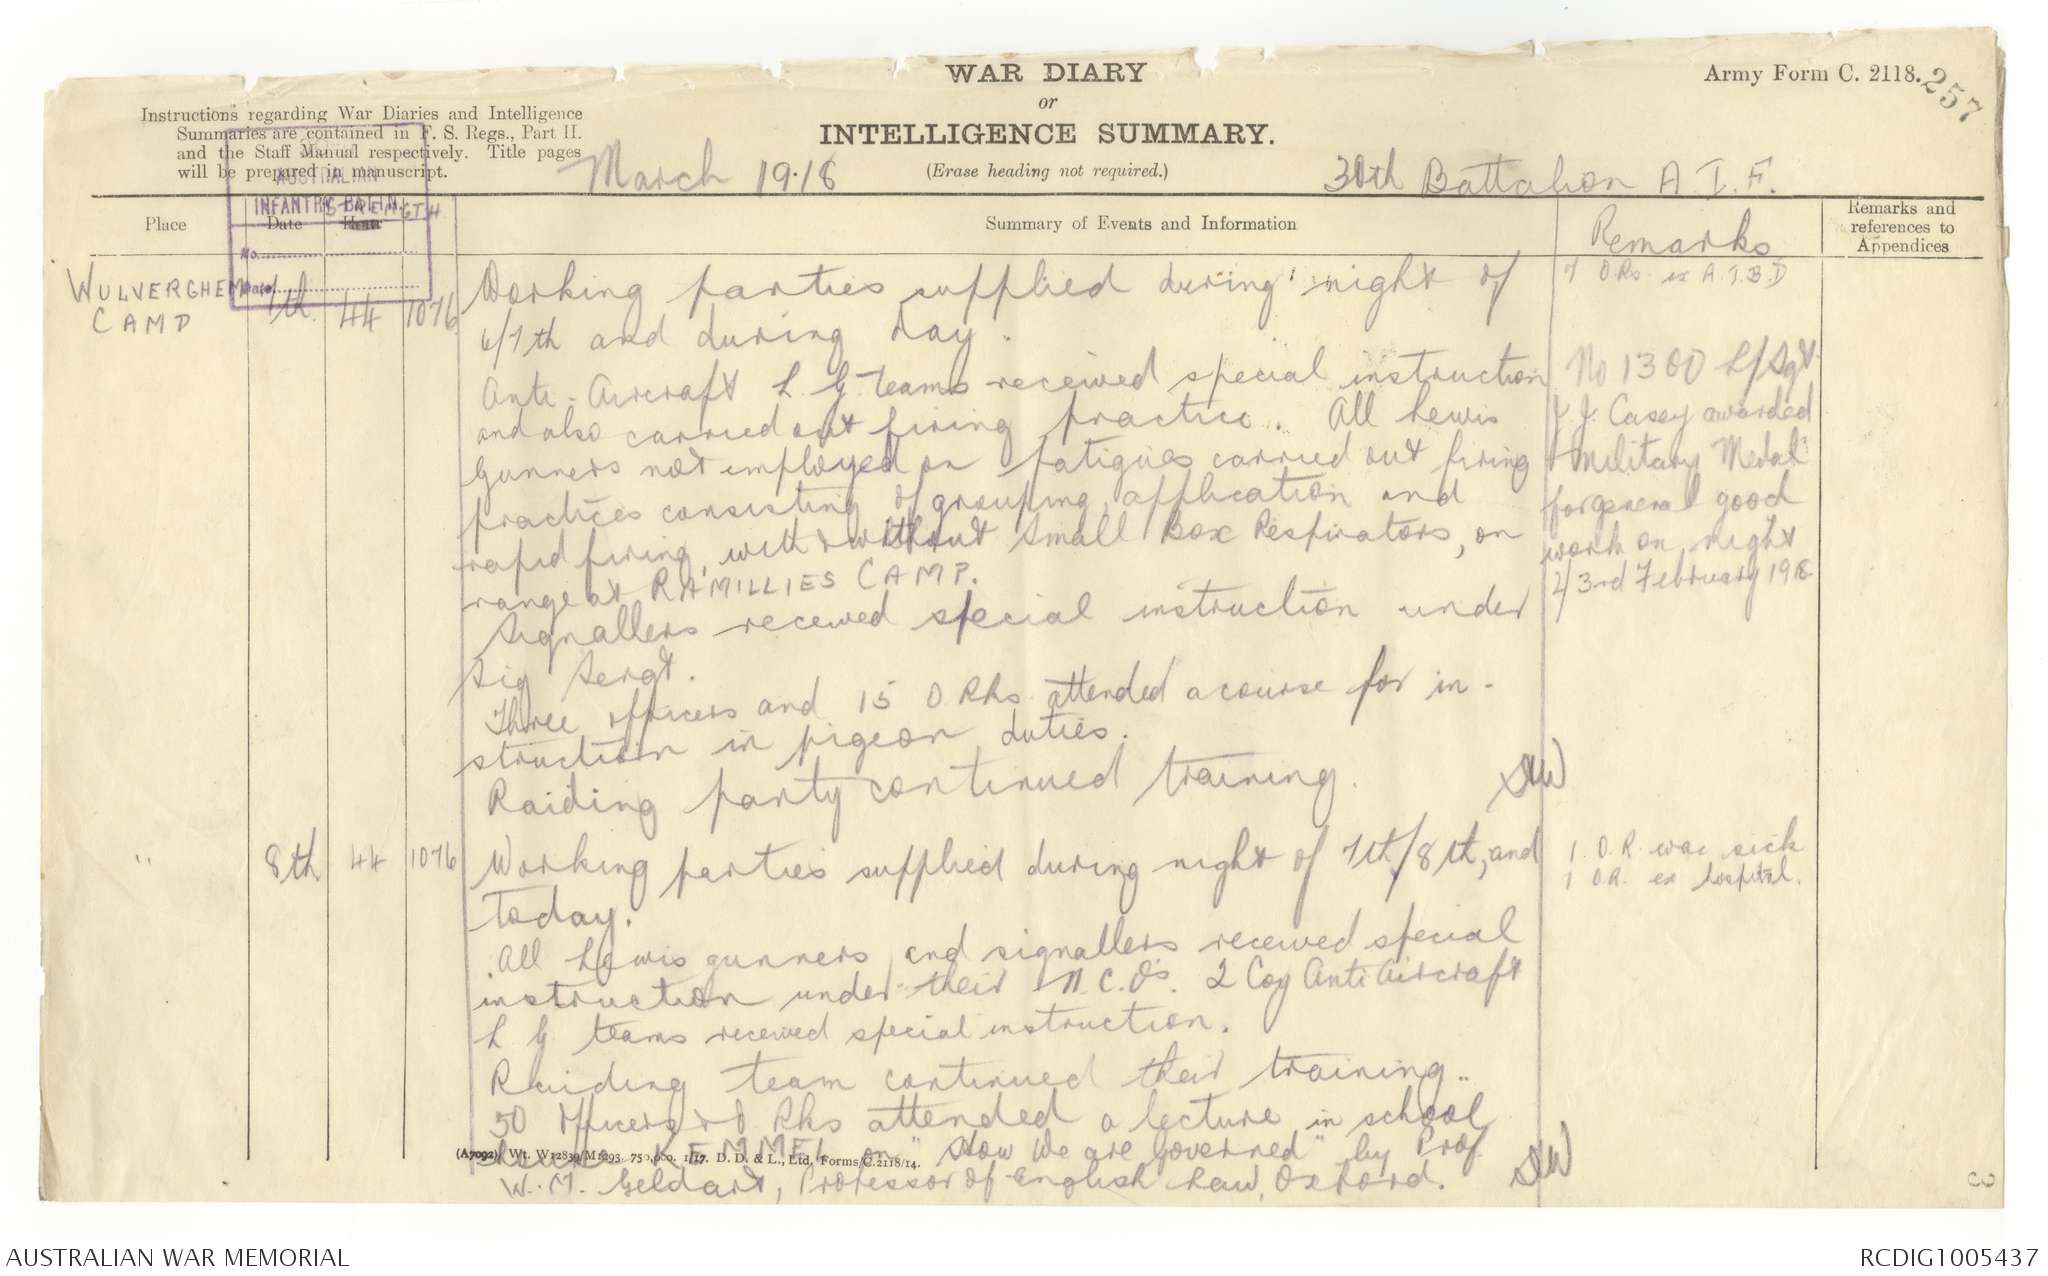 WAR DIARY
or
INTELLIGENCE SUMMARY.
(Erase heading not required.)
Army Form C. 2118.
257
Instructions regarding War Diaries and Intelligence
Summaries are contained in F. S. Regs., Part II.
and the Staff Manual respectively. Title pages
will be prepared in manuscript.
March 1918
30th Battalion A.I.F.
AUSTRALIAN
INFANTRY BATTN.
No.
Date
Place
Date
Hour
STRENGTH
Summary of Events and Information
Remarks
Remarks and
references to
Appendices
WULVERGHEM
CAMP
7th 44 1076
Working parties supplied during night of
6/7th and during day.
Anti-Aircraft L G teams received special instruction
and also carried out firing practice. All Lewis
Gunners not employed on fatigues carried out firing
practices consisting of grouping, application and
rapid firing, with & without Small Box Respirators, on
range at RAMILLIES CAMP.
Signallers received special instruction under
Sig Sergt.
Three officers and 15 O Rks attended a course for in-
struction in pigeon duties.
Raiding party continued training.
7 O.Rs. ex A.I.B.D
No 1300 L/Sgt
J. Casey awarded
Military Medal
for general good
work on night
2/3rd February 1918
" 8th 44 1076
Working parties supplied during night of 7th/8th, and
today.
All Lewis gunners and signallers received special
instruction under their N.C.O's. 2 Coy Anti Aircraft
L G teams received special instruction.
Raiding team continued their training..
50 Officers & O Rks attended a lecture in school
KEMMEL on "How We are Governed" by Prof.
W. M. Geldart, Professor of English Law, Oxford.
1 O.R. wae sick
1 O.R. ex hospital.
(A7092). Wt. W12839/M1293. 750,000. 1/17. D. D. & L., Ltd. Forms/C.2118/14.
3
AUSTRALIAN WAR MEMORIAL
RCDIG1005437